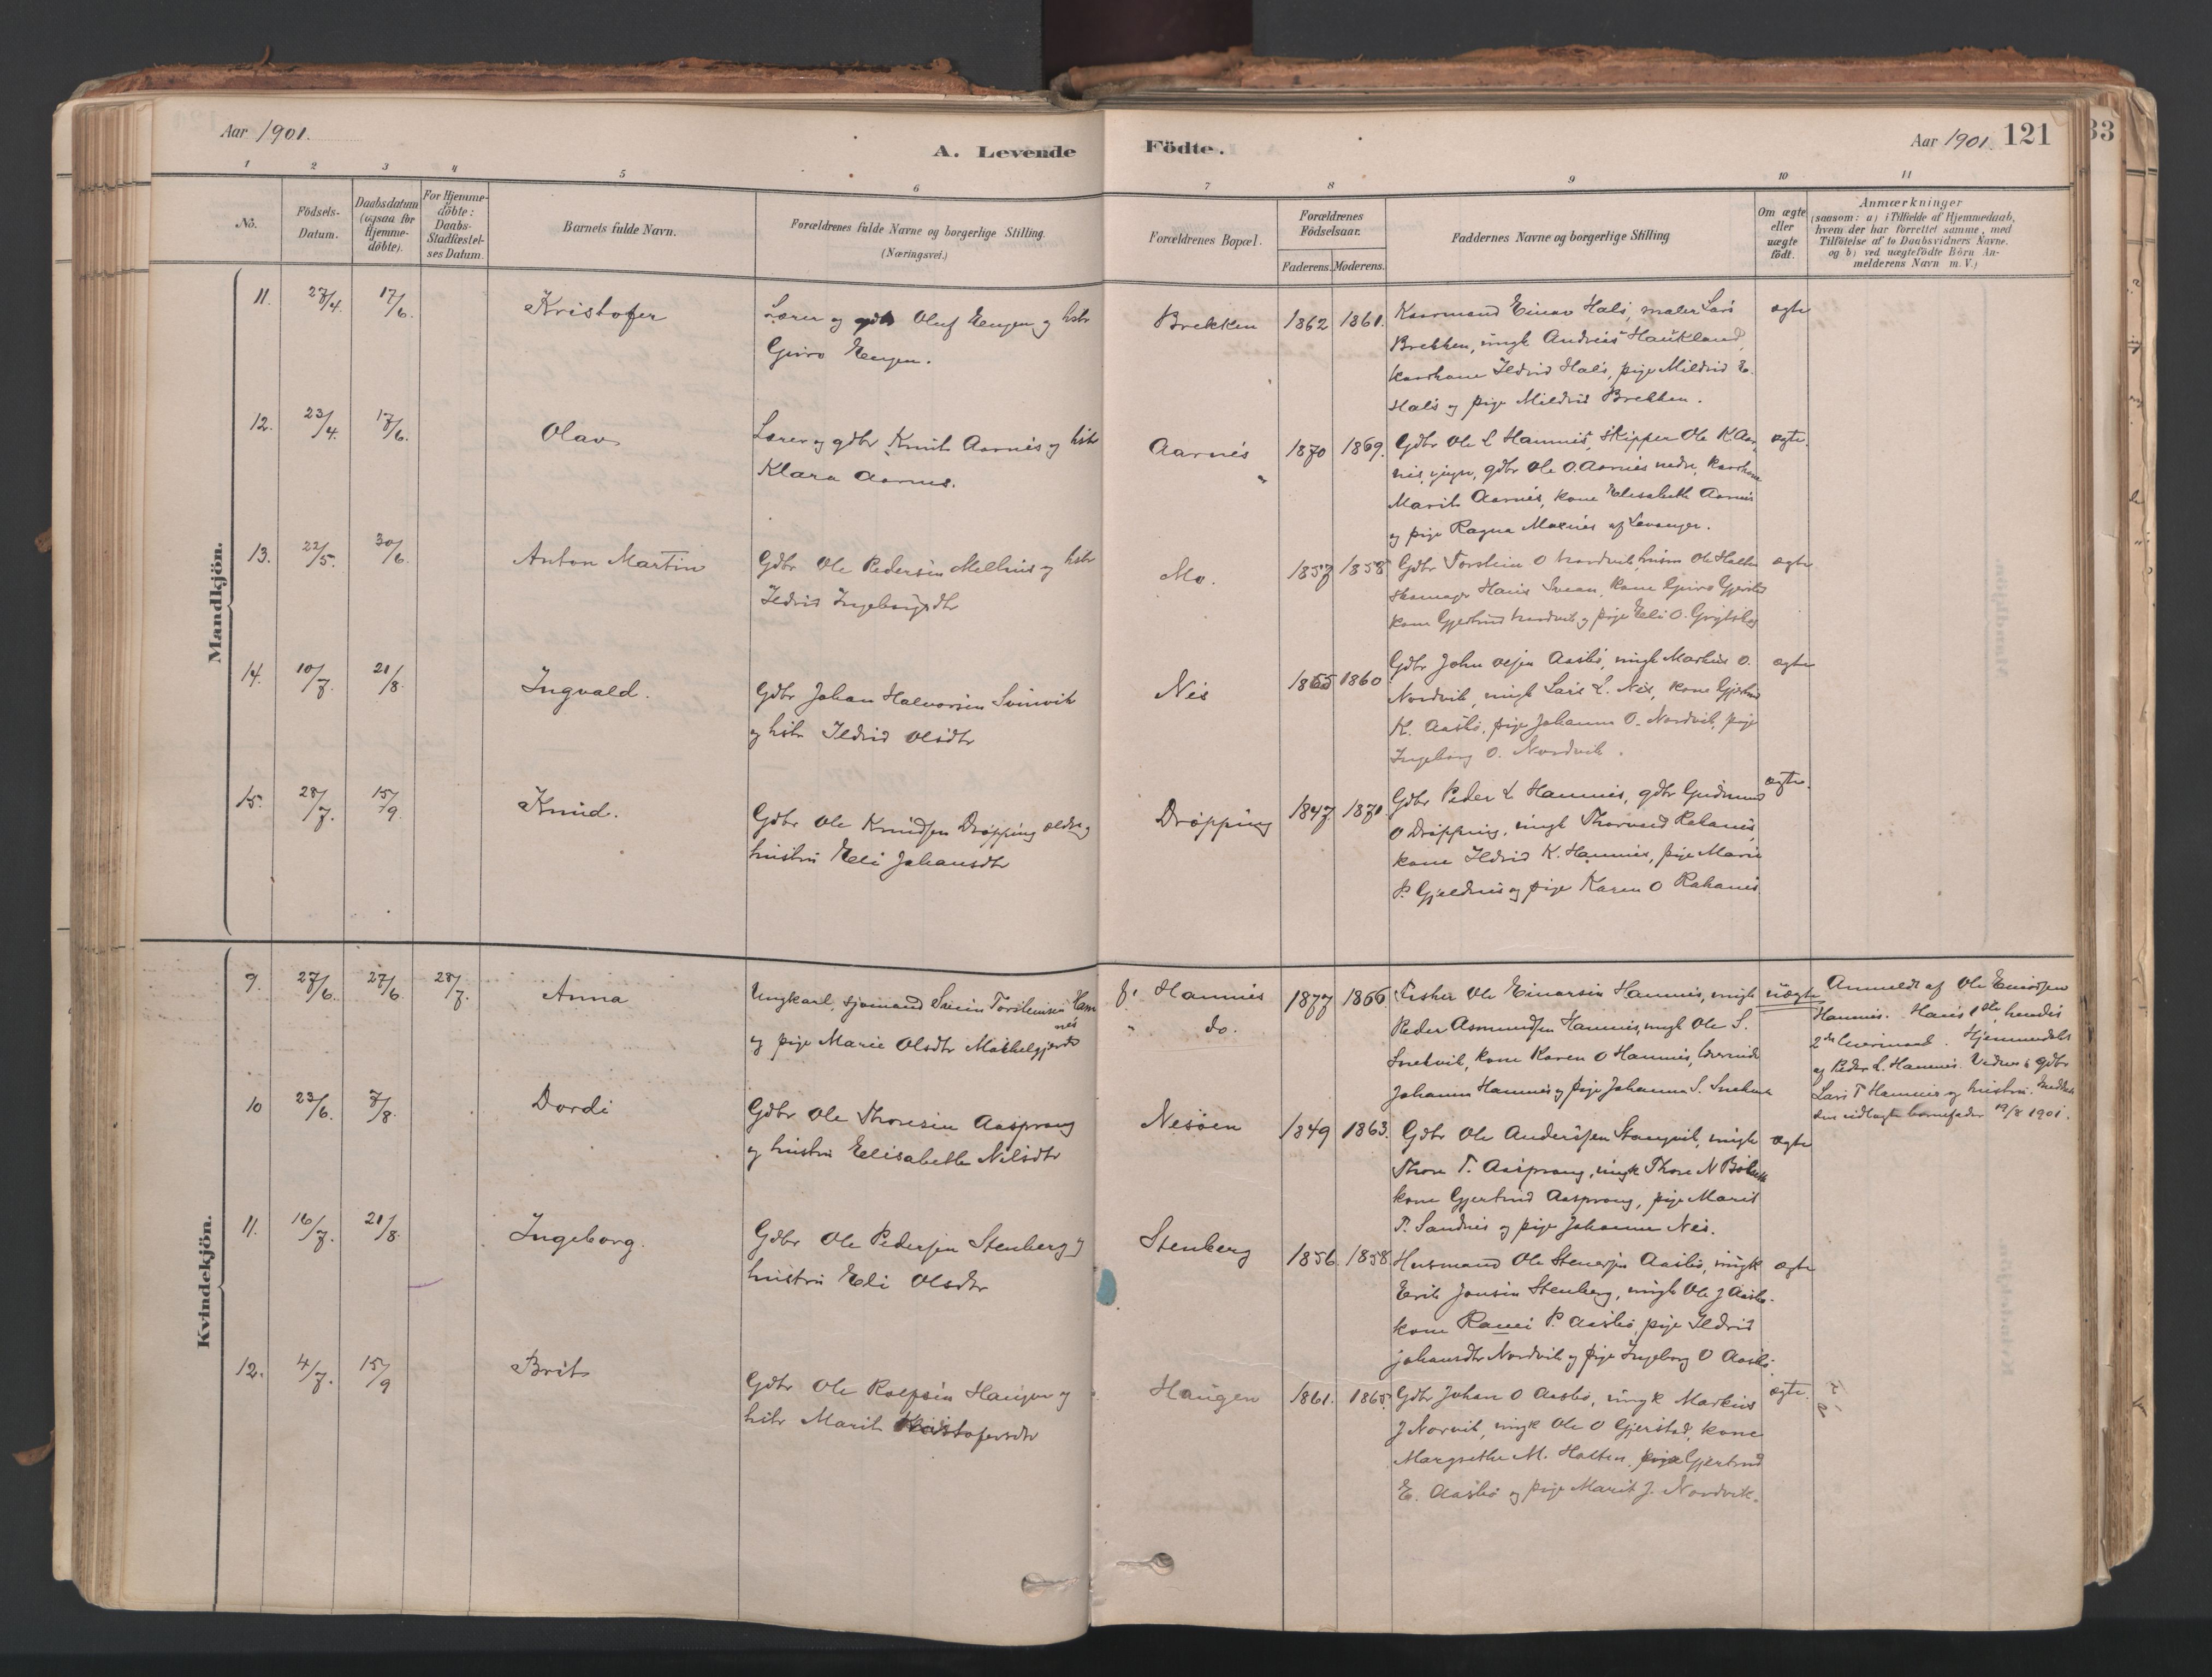 Aar 1901.
A. Levende
Födte.
Aar 1901. 121
33
1 2 3 4 5 6 7 8 9 10 11
No.
Födsels-
Datum.
Daabsdatum
(ogsaa for
Hjemme-
döbte).
For Hjemme-
döbte:
Daabs-
Stadfæstel-
ses Datum.
Barnets fulde Navn.
Forældrenes fulde Navne og borgerlige Stilling.
(Næringsvei.)
Forældrenes Bopæl.
Forældrenes
Födselsaar.
Faderens. Moderens.
Faddernes Navne og borgerlige Stilling
Om ægte
eller
uægte
födt.
Anmærkninger
(saasom: a) i Tilfælde af Hjemmedaab,
hvem der har forrettet samme, med
Tilföielse af to Daabsvidners Navne.
og b) ved uægtefödte Börn An-
melderens Navn m. V.)
Mandkjön.
11. 27/4. 17/6. Kristofer
Lærer og gdbr Oluf Engen og hstr
Guro Engen.
Brekken 1862 1861.
Einar Hals, maler Lars
Brekken, ungk Andreas Haukland,
Ildrid Hals, pige Mildrid
Hals og pige Mildrid Brekken.
ægte
12. 23/4. 17/6. Olav
Lærer og gdbr Knut Aarnes og hstr
Klara Aarnes.
Aarnes 1870 1869.
Gdbr Ole L Hamnes, skipper Ole K Aar
nes, gdbr Ole O. Aarnes nedre,
Marit Aarnes, kone Elisabeth Aarnes
og pige Ragna af Levanger.
ægte.
13. 22/5. 30/6. Anton Martin
Gdbr Ole Pedersen Melhus og hstr
Ildrid Ingebrigtsdtr
Mo. 1857 1858
Gdbr Torstein O husm Ole Holten
Hans Svean, kone Guro
kone Gjertrud og pige Eli O.
ægte
14. 10/7. 21/8. Ingvald.
Gdbr Johan Halvorsen Svinvik
og hstr Ildrid Olsdtr
Nes 1865 1860
Gdbr John Olsen Aasbø, ungk Markus O.
Nordvik, ungk Lars L. Nes, kone Gjertrud
K. Aasbø, pige Johanne O. Nordvik, pige
Ingeborg O. Nordvik.
ægte
15. 28/7. 15/9. Knud.
Gdbr Ole Knudsen Drøpping ældre og
hustru Eli Johansdtr
Drøpping 1847 1870.
Gdbr Peder L Hamnes, gdbr Gudmund
O Drøpping, ungk Thorvald Rakanes,
kone Ildrid K. Hamnes, pige Marie
P. Gjeldnes og pige Karen O Rakanes.
ægte.
Kvindekjön.
9. 27/6. 27/6. 28/7. Anna
Ungkarl, sjømand Svein Torsteinsen Ham
nes
og pige Marie Olsdtr
f. Hamnes
" do.
1877 1866.
Fisker Ole Einarsen Hamnes, ungk
Peder Asmundsen Hamnes, ungk Ole S.
Snekvik, kone Karen O Hamnes,
Johanna Hamnes og pige Johanna S.
uægte
Anmeldt af Ole Einarsen
Hamnes. Hans 1ste, hendes
2det leiermaal. Hjemmedøbt
af Peder L. Hamnes. Vidner: gdbr
Lars T Hamnes og hustru.
barnefader 19/8 1901.
10 23/6. 7/8. Dordi
Gdbr Ole Thoresen Aasprong
og hustru Elisabeth Nilsdtr
Nesøen 1849 1863.
Gdbr Ole Anderssen Stangvik, ungk
Thore T. Aasprong, ungk Thore N
kone Gjertrud Aasprong, pige Marit
T. Sandnes og pige Johanne Nes.
ægte
11. 16/7. 21/8. Ingeborg.
Gdbr Ole Pedersen Stenberg og
hustru Eli Olsdtr
Stenberg 1856. 1858.
Husmand Ole Stenersen Aasbø, ungk
Erik Jonsen Stenberg, ungk Ole J Aasbø.
kone P. Aasbø, pige Ildrid
Johansdtr Nordvik og pige Ingeborg O Aasbø.
ægte
12. 4/7. 15/9 Brit
Gdbr Ole Rolfsen Haugen og
hstr Marit Kristofersdtr
Haugen 1861. 1865.
Gdbr Johan O Aasbø, ungk Markus
J Norvik, ungk Ole O Gjerstad, kone
Margrethe M. Holten, pige Gjertrud
E. Aasbø og pige Marit J. Nordvik.
ægte.